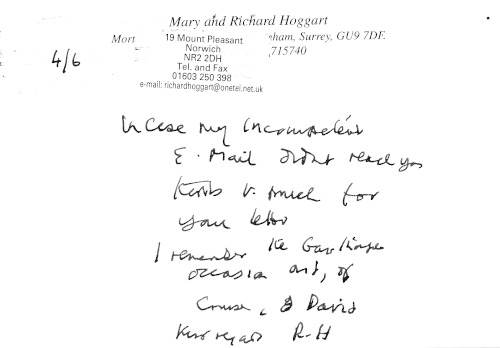 Mary and Richard Hoggart
Mort ham, Surrey, GU9 7DF.
715740
19 Mount Pleasant
Norwich
NR2 2DH
Tel. and Fax
01603 250 398
e-mail: richardhoggart@onetel.net.uk
4/6
In case my incompetent
E. Mail didnt reach you
v. much for
your letter
I remember the
occasion and, of
Course, David
R-H